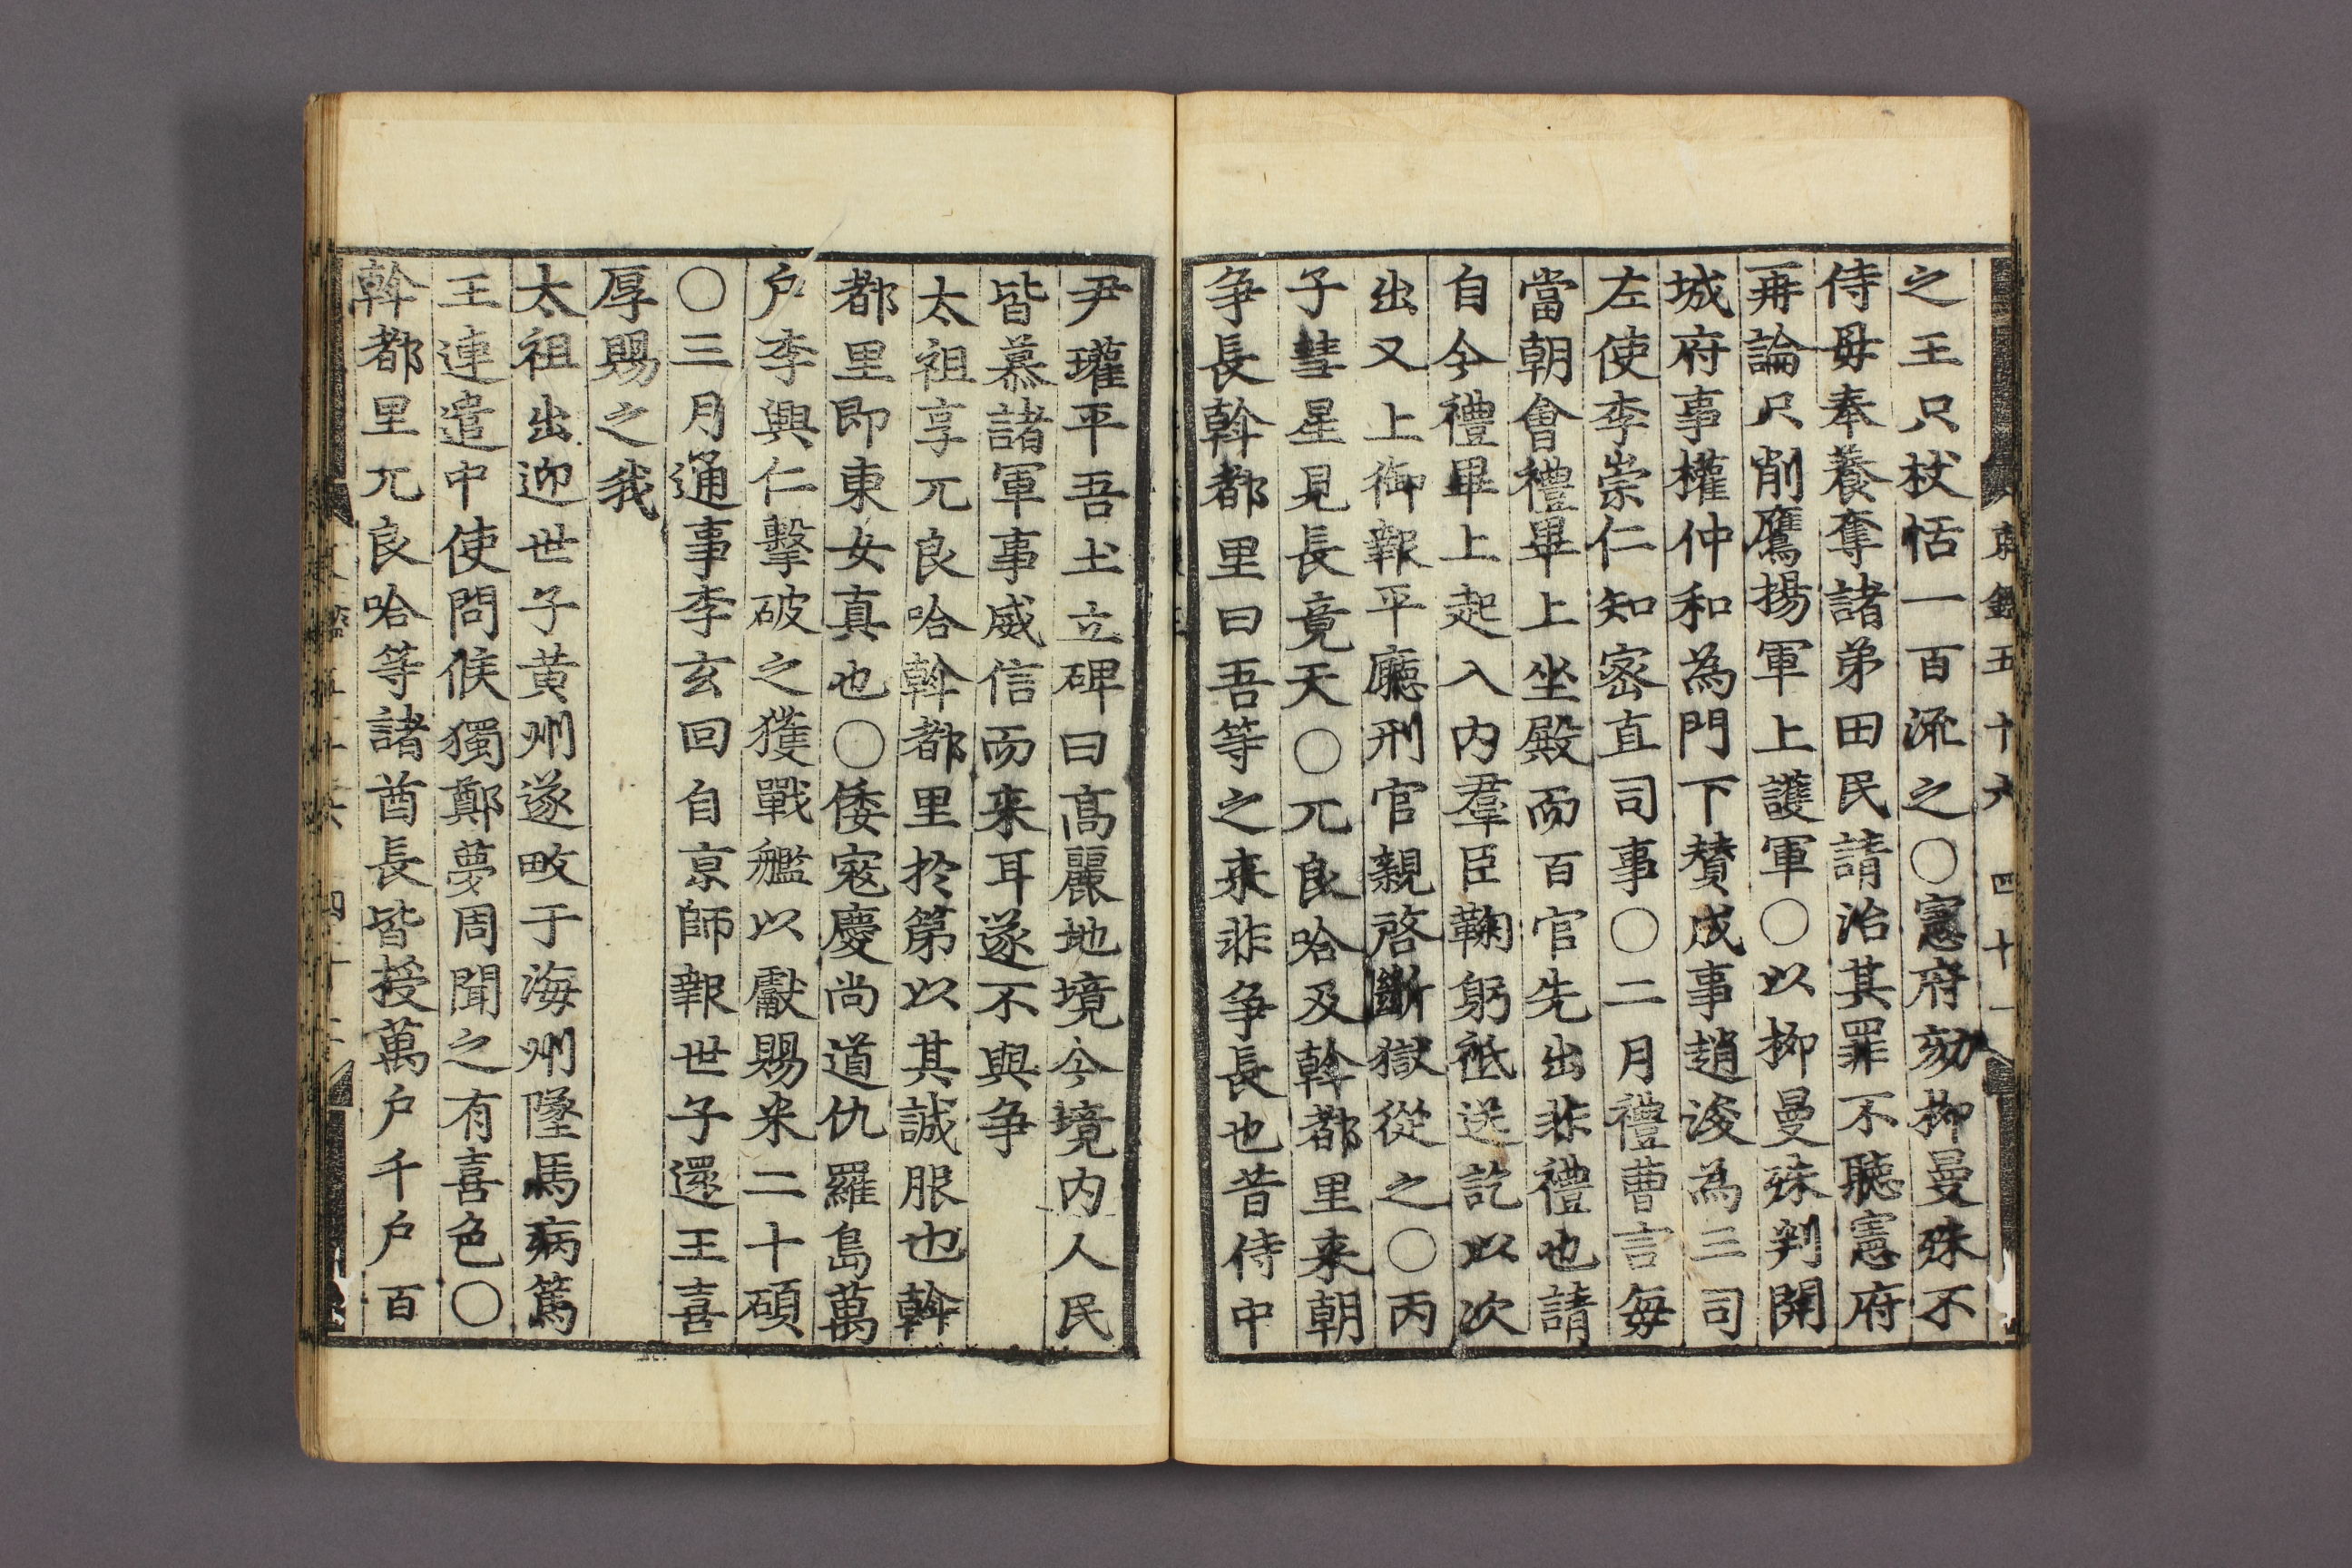 東鑑五十六 四十一
之王只杖恬一百流之〇憲府劾柳曼殊不
侍毋奉養奪諸弟田民請治其罪不聽憲府
再論只削鷹揚軍上護軍〇以柳曼殊判開
城府事權仲和為門下賛成事趙浚為三司
左使李崇仁知宻直司事〇二月禮曹言每
當朝會禮畢上坐殿而百官先出非禮也請
自今禮畢上起入内羣臣鞠躬祗送訖以次
出又上御報平廳刑官親啓斷獄從之〇丙
子彗星見長竟天〇兀良哈及斡都里来朝
争長斡都里曰吾等之来非争長也昔侍中
尹瓘平吾土立碑曰髙麗地境今境内人民
皆慕諸軍事威信而来耳遂不與争
太祖享兀良哈斡都里扵第以其誠服也斡
都里即東女真也〇倭寇慶尚道仇羅島萬
户李興仁擊破之獲戰艦以獻賜米二十碩
〇三月通事李玄回自京師報世子還王喜
厚賜之我
太祖出迎世子黄州遂畋于海州墜馬病篤
王連遣中使問候獨鄭夢周聞之有喜色〇
斡都里兀良哈等諸酋長皆授萬户千户百